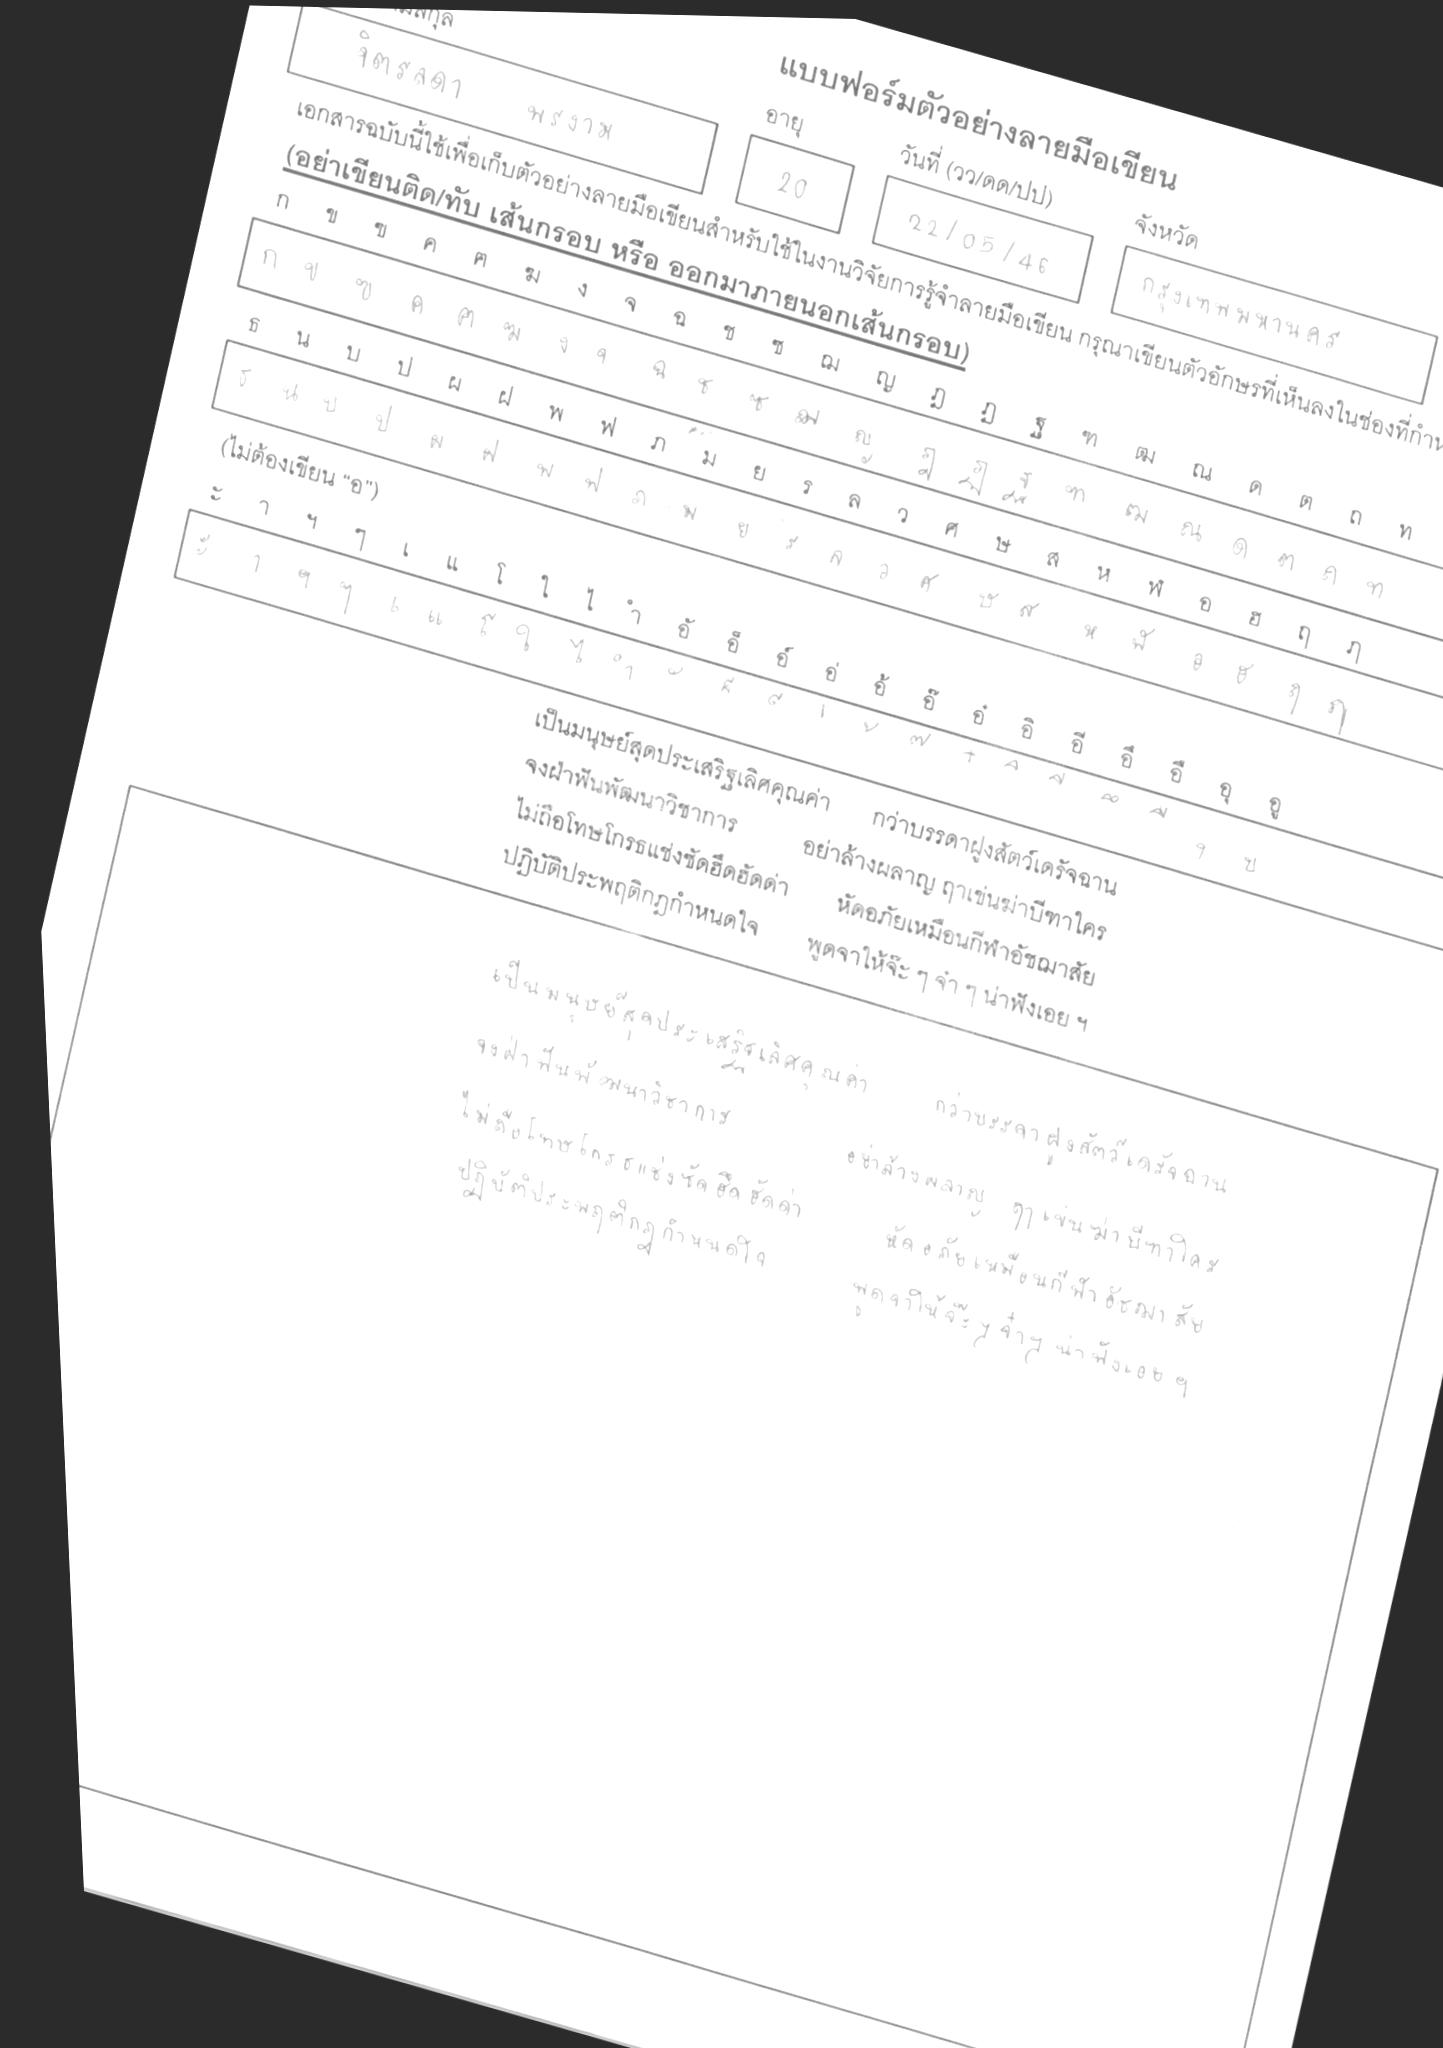 แบบฟอร์มตัวอย่างลายมือเขียน
อายุ
วันที่ (วว/ดด/ปป)
จังหวัด
จิตรลดา พรงาม
20
22/05/46
กรุงเทพมหานคร
เอกสารฉบับนี้ใช้เพื่อเก็บตัวอย่างลายมือเขียนสำหรับใช้ในงานวิจัยการรู้จำลายมือเขียน กรุณาเขียนตัวอักษรที่เห็นลงในช่องที่
(อย่าเขียนติด/ทับ เส้นกรอบ หรือ ออกมาภายนอกเส้นกรอบ)
ก ข ฃ ค ฅ ฆ ง จ ฉ ช ซ ฌ ญ ฎ ฏ ฐ ฑ ฒ ณ ด ต ถ ท
ก ข ฃ ค ฅ ฆ ง จ ฉ ช ซ ฌ ญ ฎ ฏ ฐ ฑ ฒ ณ ด ต ถ ท
ธ น บ ป ผ ฝ พ ฟ ภ ม ย ร ล ว ศ ษ ส ห ฬ อ ฮ ฤ ฦ
ธ น บ ป ผ ฝ พ ฟ ภ ม ย ร ล ว ศ ษ ส ห ฬ อ ฮ ฤ ฦ
(ไม่ต้องเขียน “อ”)
ะ า ฯ ๆ เ แ โ ใ ไ ำ อั อ็ อ์ อ่ อ้ อ๊ อ๋ อิ อี อึ อื อุ อู
ะ า ฯ ๆ เ แ โ ใ ไ ำ ั ็ ์ ่ ้ ๊ ๋ ิ ี ึ ื ุ ู
เป็นมนุษย์สุดประเสริฐเลิศคุณค่า กว่าบรรดาฝูงสัตว์เดรัจฉาน
จงฝ่าฟันพัฒนาวิชาการ อย่าล้างผลาญ ฤๅเข่นฆ่าบีฑาใคร
ไม่ถือโทษโกรธแช่งซัดฮึดฮัดด่า หัดอภัยเหมือนกีฬาอัชฌาสัย
ปฏิบัติประพฤติกฎกำหนดใจ พูดจาให้จ๊ะ ๆ จ๋า ๆ น่าฟังเอย ฯ
เป็นมนุษย์สุดประเสริฐเลิศคุณค่า กว่าบรรดาฝูงสัตว์เดรัจฉาน
จงฝ่าฟันพัฒนาวิชาการ อย่าล้างผลาญ ฤๅเข่นฆ่าบีฑาใคร
ไม่ถือโทษโกรธแช่งซัดฮึดฮัดด่า หัดอภัยเหมือนกีฬาอัชฌาสัย
ปฏิบัติประพฤติกฎกำหนดใจ พูดจาให้จ๊ะๆ จ๋าๆ น่าฟังเอย ฯ